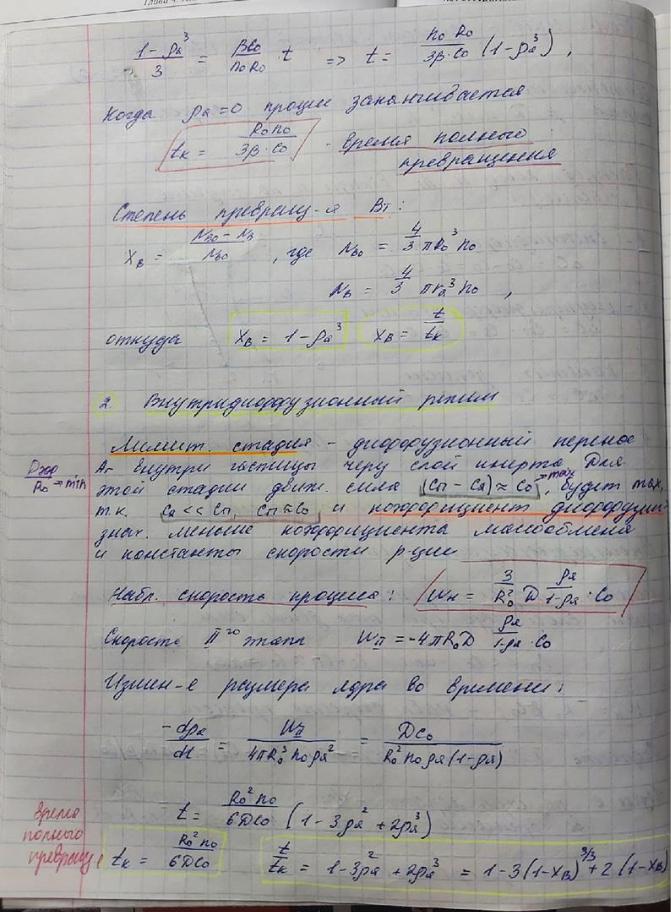 (1-ρя³)/3 = βC₀/(n₀R₀) · t => t = n₀R₀/(3β·C₀) (1-ρя³),
когда ρя=0 процесс заканчивается
tк = R₀n₀/(3β·C₀) - время полного
превращения
Степень превращ-я Вт:
X_B = (N_B0 - N_B)/N_B0, где N_B0 = 4/3 πR₀³n₀
N_B = 4/3 πrя³n₀,
откуда X_B = 1-ρя³ X_B = t/tк
2. Внутридиффузионный режим
Лимит. стадия - диффузионный перенос
Dэф/R₀ → min Аг внутри частицы через слой инерта. Для
этой стадии движ. сила (Cп - Cя) ≈ C₀ → max, будет max,
т.к. Cя << Cп, Cп ≈ C₀ и коэффициент диффузии
знач. меньше коэффициента массообмена
и константы скорости р-ции
Набл. скорость процесса: Wн = 3/R₀² D ρя/(1-ρя) · C₀
Скорость II го этапа W_II = -4πR₀D ρя/(1-ρя) · C₀
Измен-е размера ядра во времени:
-dρя/dt = W_II/(4πR₀³n₀ρя²) = DC₀/(R₀²n₀ρя(1-ρя))
t = R₀²n₀/(6DC₀) (1-3ρя²+2ρя³)
время
полного
превращ.
tк = R₀²n₀/(6DC₀) t/tк = 1-3ρя²+2ρя³ = 1-3(1-X_B)^2/3 + 2(1-X_B)